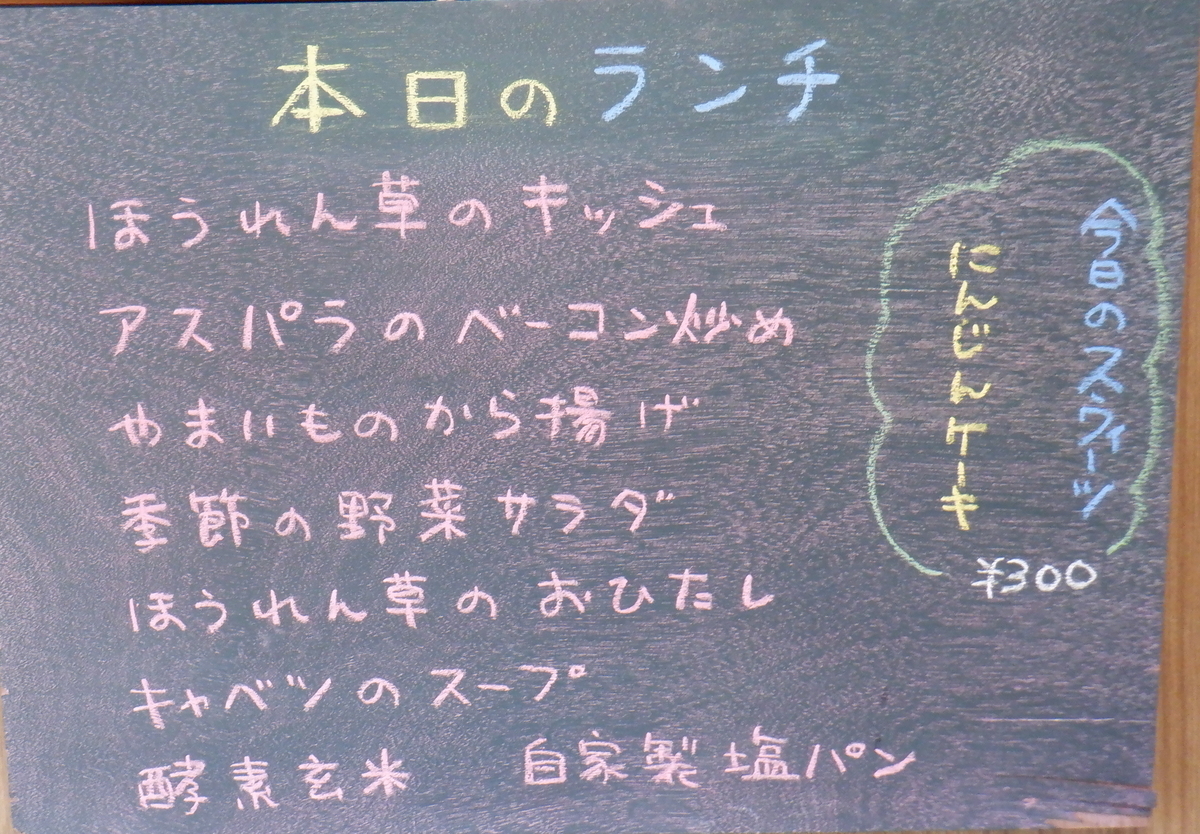 本日のランチ
ほうれん草のキッシュ
アスパラのベーコン炒め
やまいものから揚げ
季節の野菜サラダ
ほうれん草のおひたし
キャベツのスープ
酵素玄米 自家製塩パン
今日のスウィーツ
にんじんケーキ
¥300